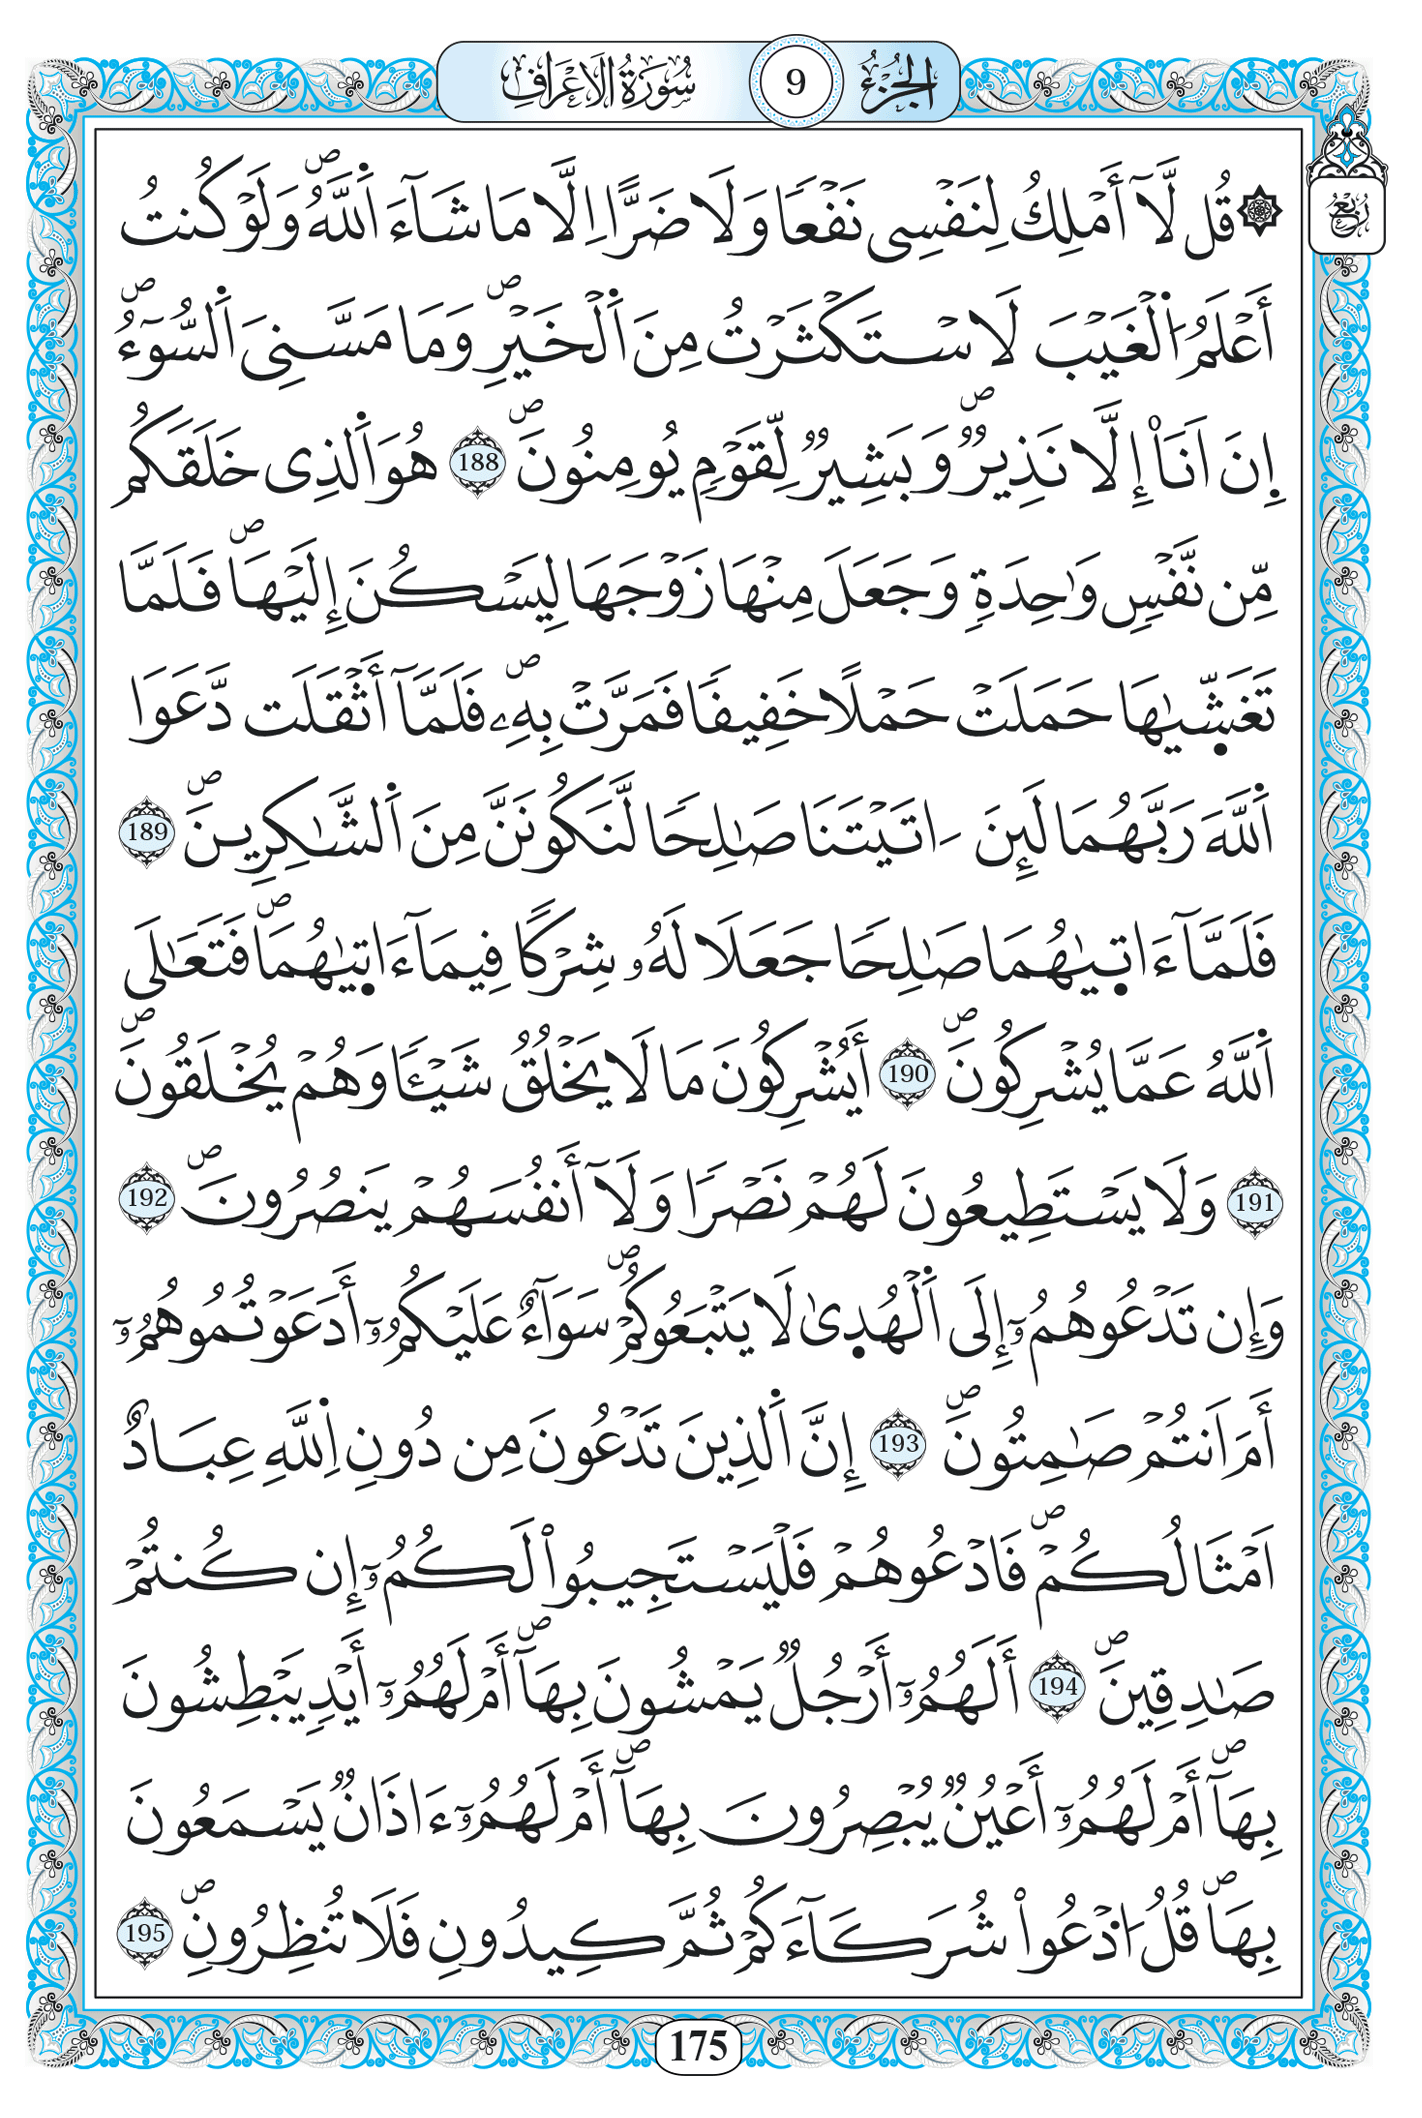 الجُزْءُ 9 سُورَةُ الَاعْرَافِ
رُبُع
۞ قُل لَّآ أَمْلِكُ لِنَفْسِى نَفْعًا وَلَا ضَرًّا اِلَّا مَا شَآءَ اَ۬للَّهُۖ وَلَوْ كُنتُ
أَعْلَمُ اُ۬لْغَيْبَ لَاسْتَكْثَرْتُ مِنَ اَ۬لْخَيْرِۖ وَمَا مَسَّنِىَ اَ۬لسُّوٓءُۖ
إِنَ اَنَا۠ إِلَّا نَذِيرٌ وَبَشِيرٌ لِّقَوْمٍ يُومِنُونَۖ 188 هُوَ اَ۬لذِى خَلَقَكُم
مِّن نَّفْسٍ وَٰحِدَةٍ وَجَعَلَ مِنْهَا زَوْجَهَا لِيَسْكُنَ إِلَيْهَاۖ فَلَمَّا
تَغَشّ۪ىٰهَا حَمَلَتْ حَمْلًا خَفِيفًا فَمَرَّتْ بِهِۦۖ فَلَمَّآ أَثْقَلَت دَّعَوَا
اَ۬للَّهَ رَبَّهُمَا لَئِنَ ـاتَيْتَنَا صَٰلِحًا لَّنَكُونَنَّ مِنَ اَ۬لشَّٰكِرِينَۖ 189
فَلَمَّآ ءَات۪ىٰهُمَا صَٰلِحًا جَعَلَا لَهُۥ شِرْكًا فِيمَآ ءَات۪ىٰهُمَاۖ فَتَعَٰلَى
اَ۬للَّهُ عَمَّا يُشْرِكُونَۖ 190 أَيُشْرِكُونَ مَا لَا يَخْلُقُ شَيْـًٔا وَهُمْ يُخْلَقُونَۖ
191 وَلَا يَسْتَطِيعُونَ لَهُمْ نَصْرًا وَلَآ أَنفُسَهُمْ يَنصُرُونَۖ 192
وَإِن تَدْعُوهُمُۥٓ إِلَى اَ۬لْهُد۪ىٰ لَا يَتْبَعُوكُمْۖ سَوَآءٌ عَلَيْكُمُۥٓ أَدَعَوْتُمُوهُمُۥٓ
أَمَ اَنتُمْ صَٰمِتُونَۖ 193 إِنَّ اَ۬لذِينَ تَدْعُونَ مِن دُونِ اِ۬للَّهِ عِبَادٌ
اَمْثَالُكُمْۖ فَادْعُوهُمْ فَلْيَسْتَجِيبُوا۟ لَكُمُۥٓ إِن كُنتُمْ
صَٰدِقِينَۖ 194 أَلَهُمُۥٓ أَرْجُلٌ يَمْشُونَ بِهَآۖ أَمْ لَهُمُۥٓ أَيْدٍ يَبْطِشُونَ
بِهَآۖ أَمْ لَهُمُۥٓ أَعْيُنٌ يُبْصِرُونَ بِهَآۖ أَمْ لَهُمُۥٓ ءَاذَانٌ يَسْمَعُونَ
بِهَاۖ قُلُ اُ۟دْعُوا۟ شُرَكَآءَكُمْ ثُمَّ كِيدُونِ فَلَا تُنظِرُونِۖ 195
175